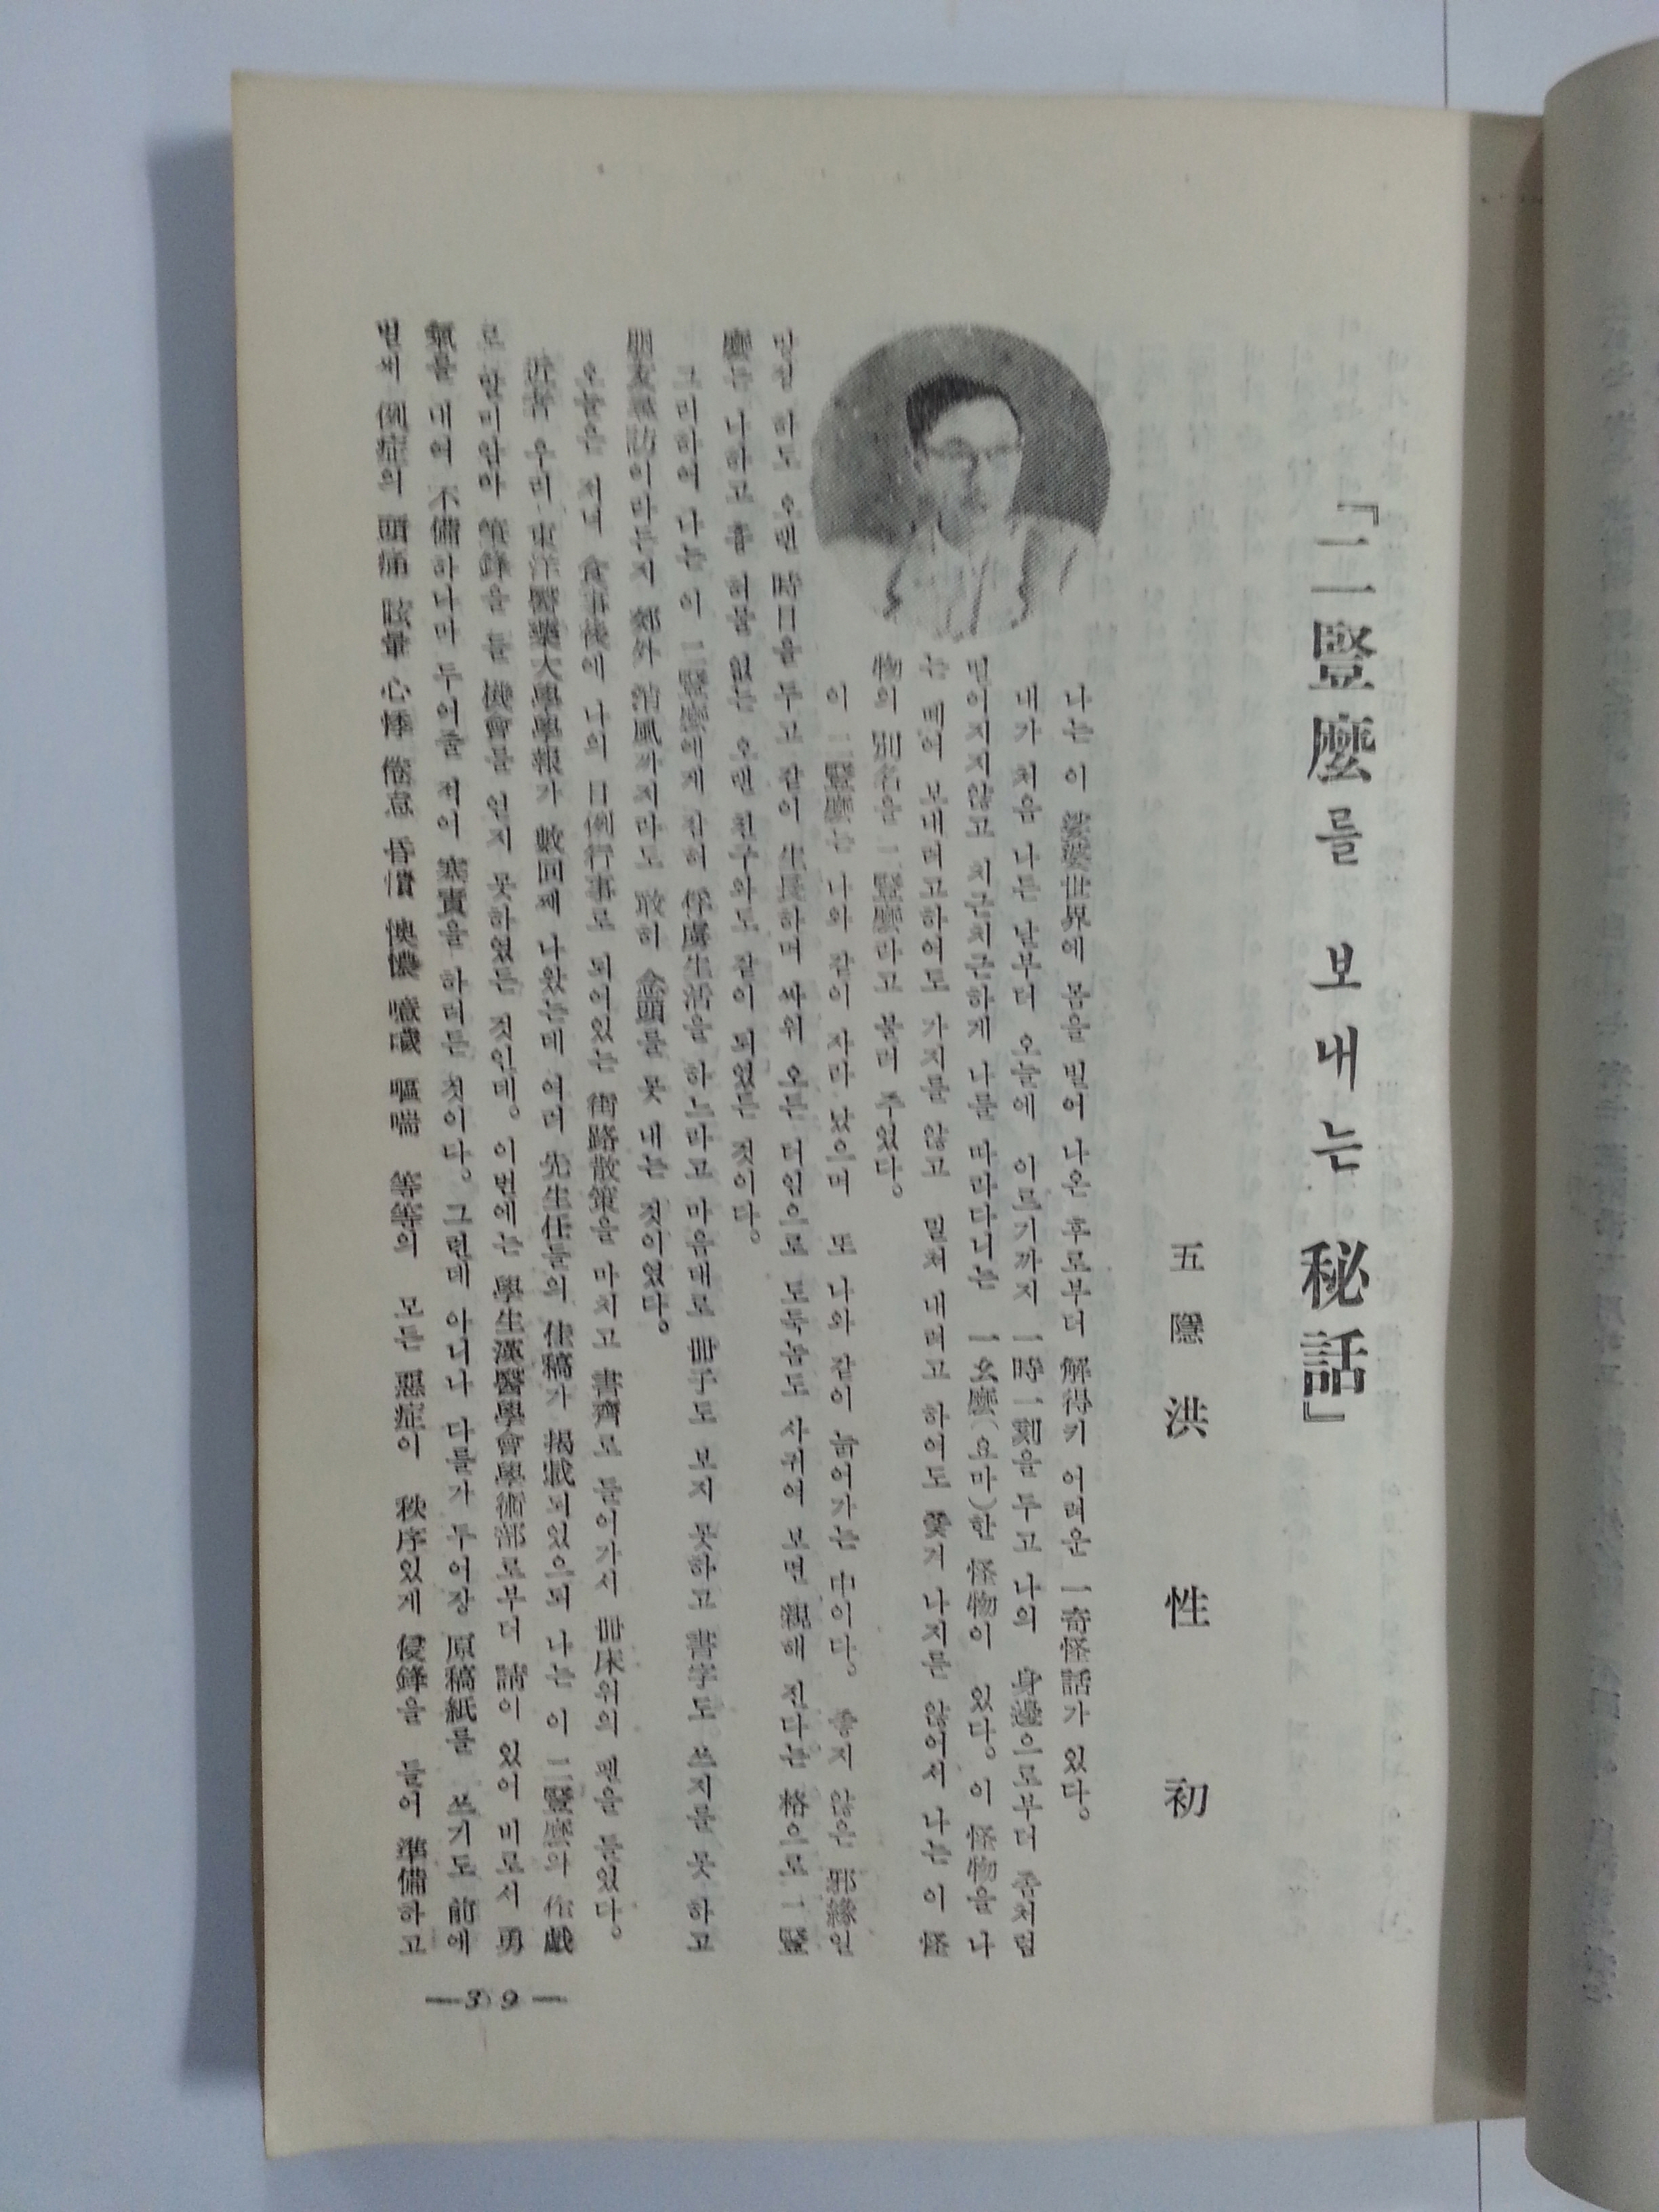 『二豎麼를 보내는 秘話』
五隱 洪 性 初
나는 이 娑婆世界에 몸을 빌어 나온 후로부터 解得키 어려운 一奇怪話가 있다。
내가 처음 나든 날부터 오늘에 이르기까지 一時一刻을 두고 나의 身邊으로부터 좀처럼
떤이지지않고 치근치근하게 나를 따라다니는 一玄麼(요마)한 怪物이 있다。이 怪物을 나
는 떼여 보내려고하여도 가지를 않고 멀처 내려고 하여도 쫓겨 나지를 않어서 나는 이 怪
物의 別名을 二豎麼라고 불러 주었다。
이 二豎麼는 나와 같이 자라 났으며 또 나와 같이 늙어가는 中이다。 좋지 않은 邪緣인
망정 하도 오랜 時日을 두고 같이 生長하며 싸워 오든 터임으로 도둑놈도 사귀여 보면 親해 진다는 格으로 二豎
麼는 나하고 흠 허물 없는 오랜 친구와도 같이 되었든 것이다。
그리하여 나는 이 二豎麼에게 잡혀 俘虜生活을 하느라고 마음대로 冊子도 보지 못하고 書字도 쓰지를 못 하고
朋友尋訪이라든지 郊外 淸風까지라도 敢히 念頭를 못 내는 것이였다。
오늘은 저녁 食事後에 나의 日例行事로 되어있는 街路散策을 마치고 書齋로 들어가서 冊床위의 펜을 들었다。
近者 우리 東洋醫藥大學學報가 數回째 나왔는데 여러 先生任들의 佳稿가 揭載되었으되 나는 이 二豎麼와 作戱
로 말미암아 筆鋒을 들 機會를 얻지 못하였든 것인데。이번에는 學生漢醫學會學術部로부터 請이 있어 비로서 勇
氣를 내여 不備하나마 두어줄 적어 塞責을 하려든 것이다。그런데 아니나 다를가 두어장 原稿紙를 쓰기도 前에
벌써 例症의 頭痛 眩暈 心悸 倦怠 昏憒 懊憹 噦 嘔喘 等等의 모든 惡症이 秩序있게 侵鋒을 들어 準備하고
—39—